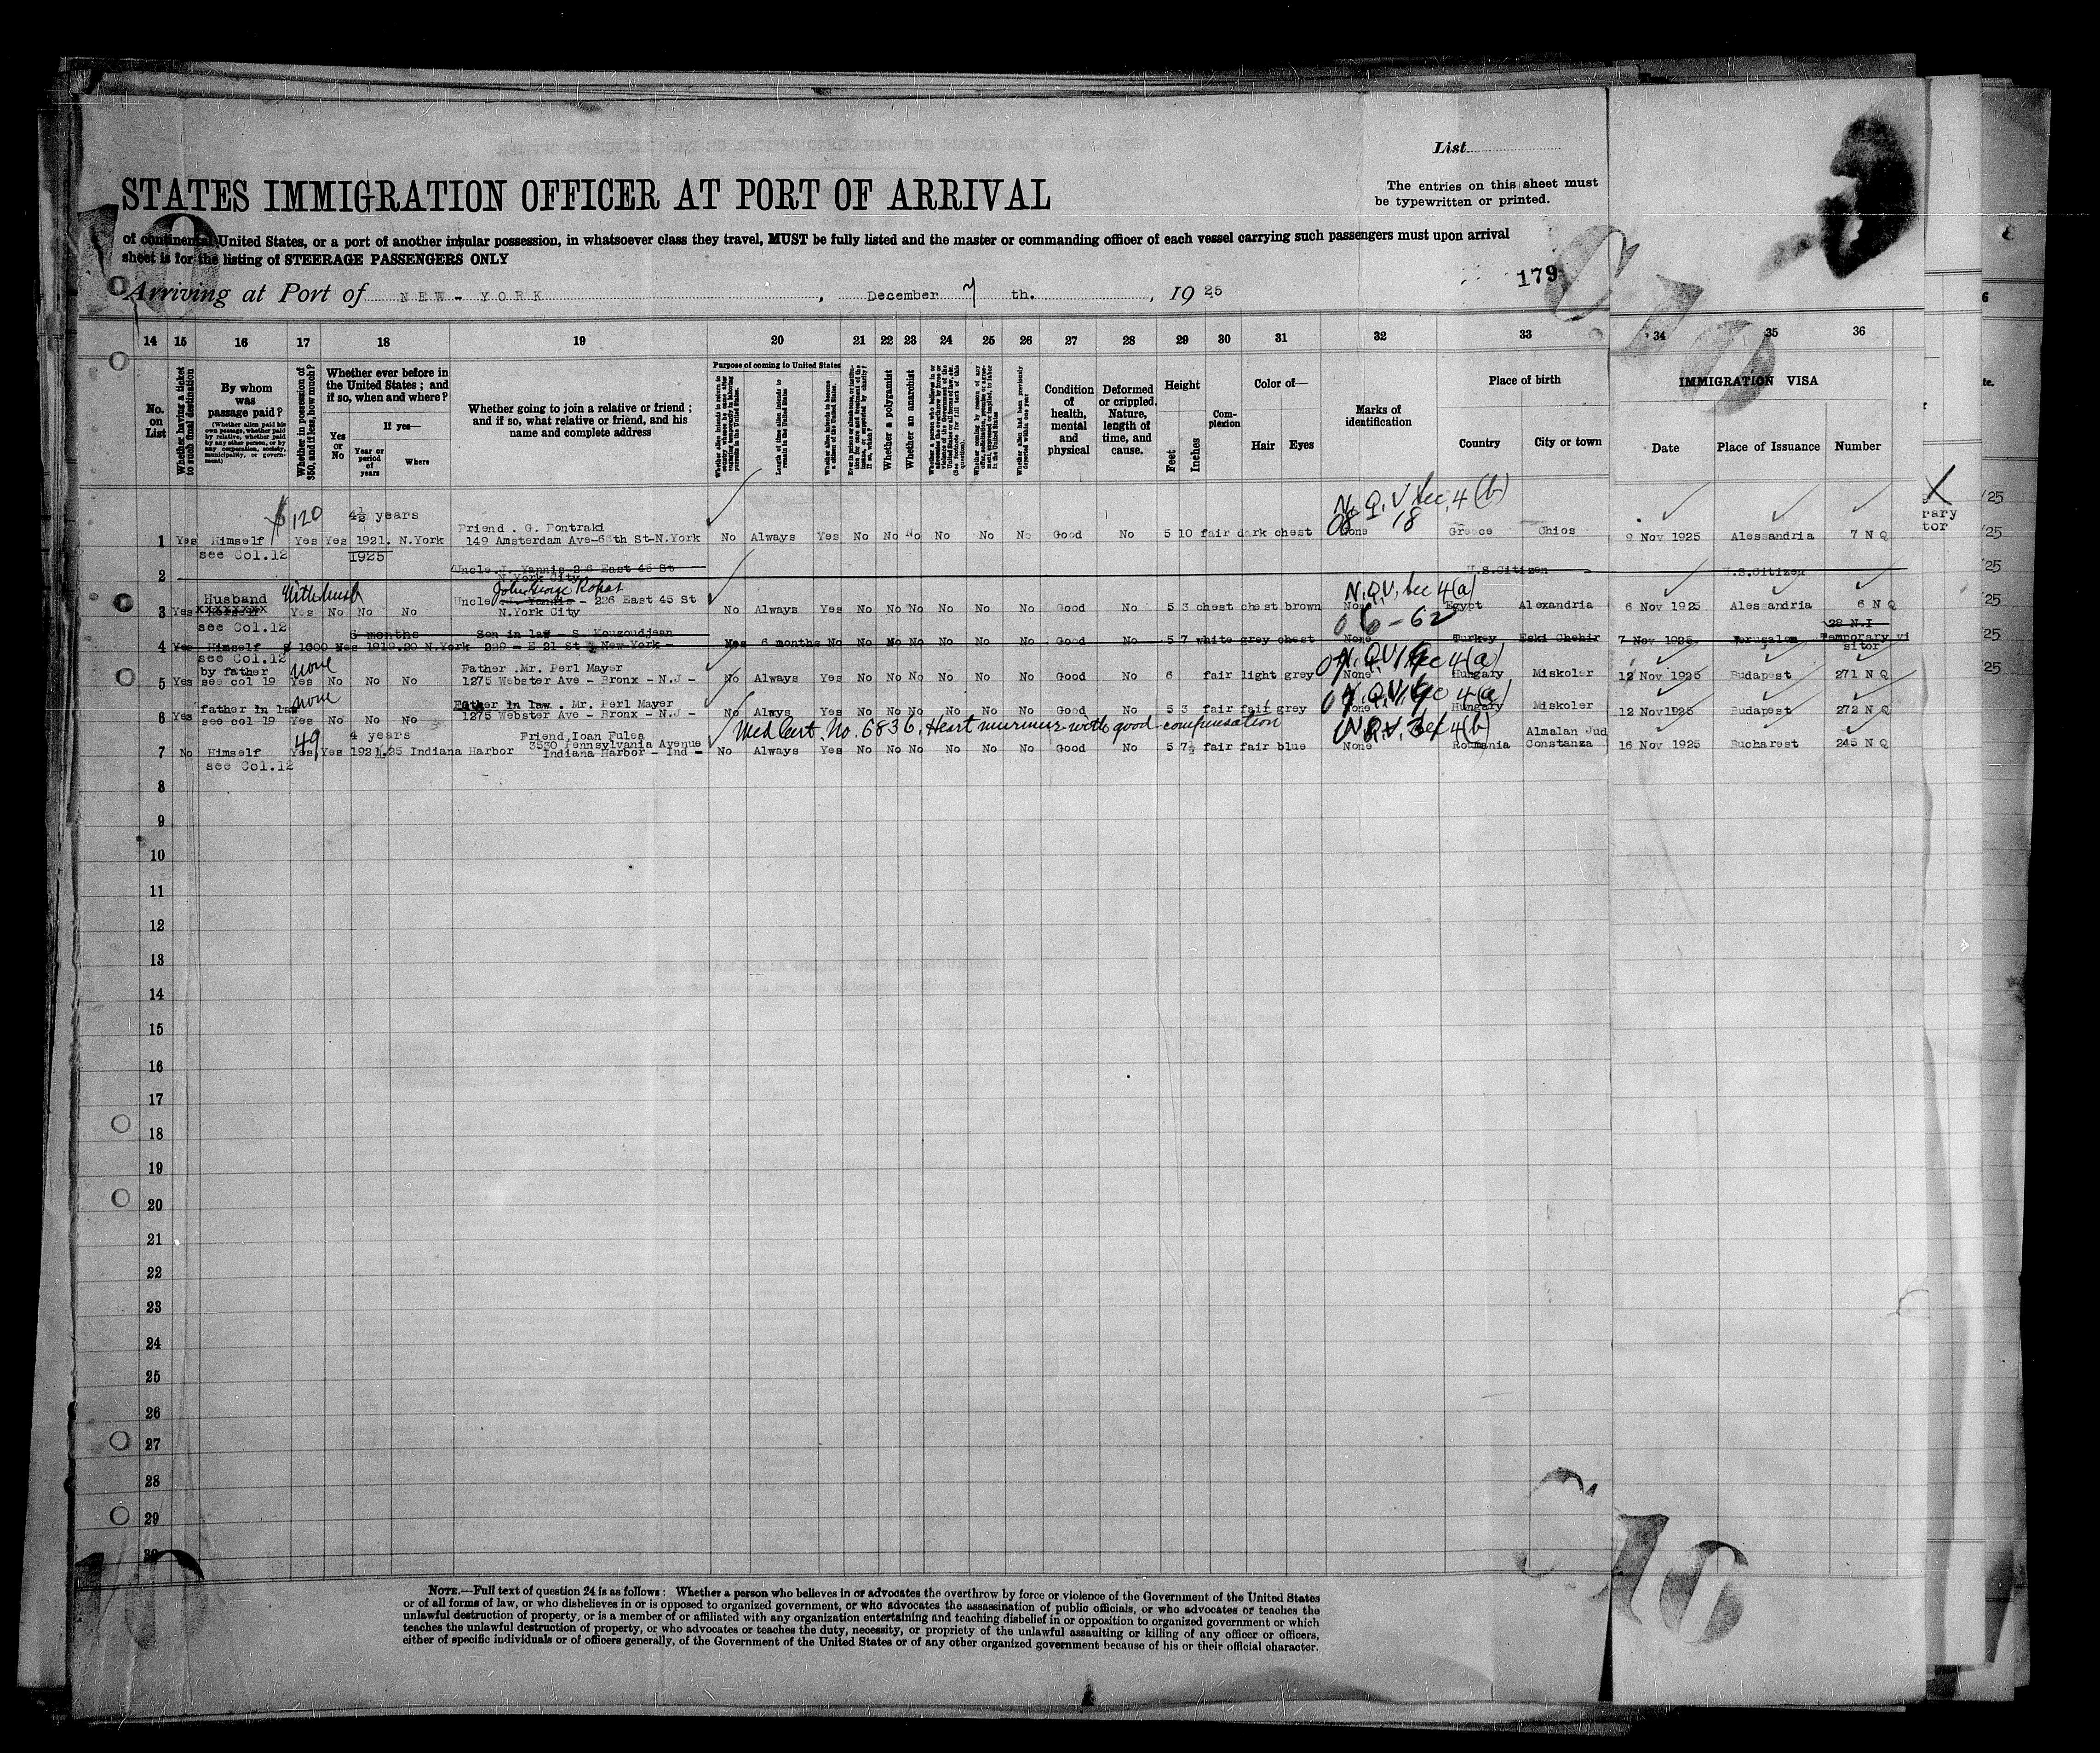 List
STATES IMMIGRATION OFFICER AT PORT OF ARRIVAL
The entries on this sheet must
be typewritten or printed.
of continental United States, or a port of another insular possession, in whatsoever class they travel, MUST be fully listed and the master or commanding officer of each vessel carrying such passengers must upon arrival
sheet is for the listing of STEERAGE PASSENGERS ONLY
179
Arriving at Port of NEW - YORK, December 7 th., 1925
14 15 16 17 18 19 20 21 22 23 24 25 26 27 28 29 30 31 32 33 34 35 36
No. on List
Whether having a ticket to such final destination
By whom was passage paid?
(Whether alien paid his own passage, whether paid by relative, whether paid by any other person, or by any corporation, society, municipality, or government)
Whether in possession of $50, and if less, how much?
Whether ever before in the United States; and if so, when and where?
Yes or No
If yes—
Year or period of years
Where
Whether going to join a relative or friend; and if so, what relative or friend, and his name and complete address
Purpose of coming to United States
Length of time alien intends to remain in the United States
Whether alien intends to become a citizen of the United States
Whether a polygamist
Whether an anarchist
Whether alien had been previously deported within one year
Condition of health, mental and physical
Deformed or crippled. Nature, length of time, and cause.
Height
Feet
Inches
Complexion
Color of—
Hair
Eyes
Marks of identification
Place of birth
Country
City or town
IMMIGRATION VISA
Date
Place of Issuance
Number
$120
4½ years
N.Q.V. Sec. 4(b)
08 18
Friend . G. Pontraki
1 Yes Himself Yes Yes 1921. N.York 149 Amsterdam Ave-66th St-N.York No Always Yes No No No No No No Good No 5 10 fair dark chest None Greece Chios 9 Nov 1925 Alessandria 7 N Q
see Col.12 1925
Uncle J. Yannis 226 East 45 St
N.York City
2 U.S.Citizen U.S.Citizen
Husband With husb John George
N.Q.V. Sec 4(a)
3 Yes Yes No No No Uncle J. Yannis - 226 East 45 St No Always Yes No No No No No No Good No 5 3 chest chest brown None Egypt Alexandria 6 Nov 1925 Alessandria 6 N Q
N.York City
see Col.12
06-62
6 months Son in law - S. Kouzoudjean 28 N.I
4 Yes Himself $ 1600 Yes 1919.20 N.York 229 - E 21 St New-York - Yes 6 months No No No No No No No Good No 5 7 white grey chest None Turkey Eski Chehir 7 Nov 1925 Jerusalem Temporary visitor
see Col.12
by father none Father .Mr. Perl Mayer N.Q.V. Sec 4(a)
5 Yes see col 19 Yes No No No 1275 Webster Ave - Bronx - N.J - No Always Yes No No No No No No Good No 6 fair light grey None Hungary Miskoler 12 Nov 1925 Budapest 271 N Q
father in law none Father in law . Mr. Perl Mayer N.Q.V. Sec 4(a)
6 Yes see col 19 Yes No No No 1275 Webster Ave - Bronx - N.J - No Always Yes No No No No No No Good No 5 3 fair fair grey None Hungary Miskoler 12 Nov 1925 Budapest 272 N Q
Med Cert. No. 6836. Heart murmur with good compensation
49 4 years Friend.Ioan Fulea N.Q.V. Sec 4(b) Almalan Jud
3530 Pennsylvania Avenue
7 No Himself Yes Yes 1921.25 Indiana Harbor Indiana Harbor - Ind - No Always Yes No No No No No No Good No 5 7½ fair fair blue None Roumania Constanza 16 Nov 1925 Bucharest 245 N Q
see Col.12
8
9
10
11
12
13
14
15
16
17
18
19
20
21
22
23
24
25
26
27
28
29
30
NOTE.—Full text of question 24 is as follows: Whether a person who believes in or advocates the overthrow by force or violence of the Government of the United States
or of all forms of law, or who disbelieves in or is opposed to organized government, or who advocates the assassination of public officials, or who advocates or teaches the
unlawful destruction of property, or is a member of or affiliated with any organization entertaining and teaching disbelief in or opposition to organized government or which
teaches the unlawful destruction of property, or who advocates or teaches the duty, necessity, or propriety of the unlawful assaulting or killing of any officer or officers,
either of specific individuals or of officers generally, of the Government of the United States or of any other organized government because of his or their official character.